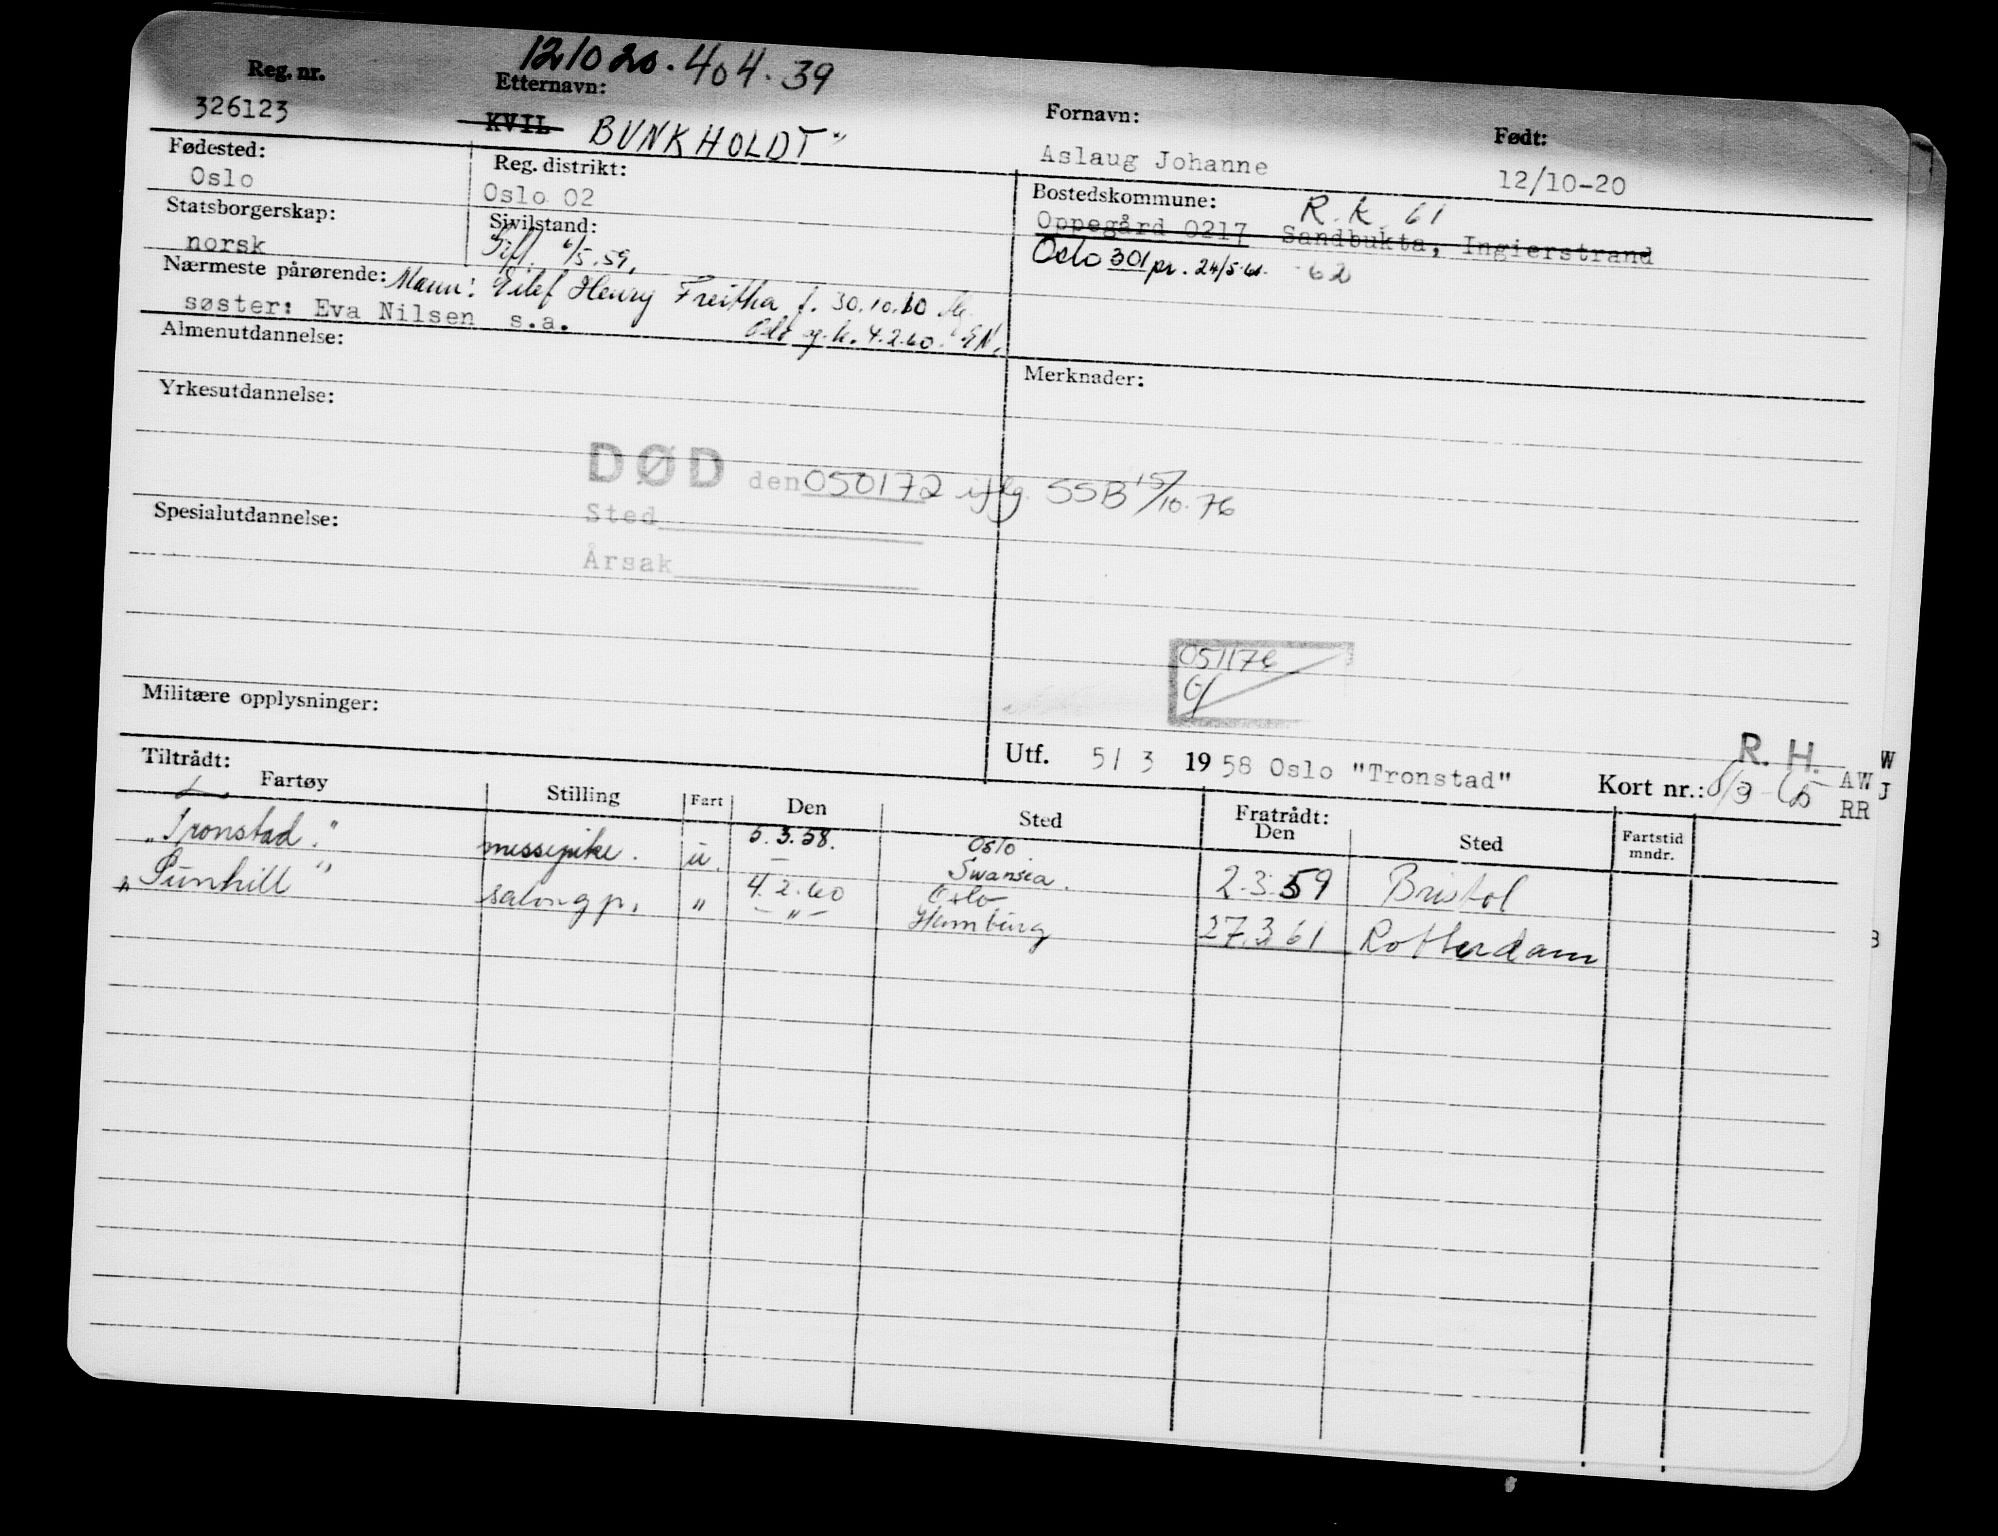 121020.404.39
Reg. nr. Etternavn: Fornavn: Født:
326123 KVIL BUNKHOLDT Aslaug Johanne 12/10-20
Fødested: Reg. distrikt: Bostedskommune: R.K. 61
Oslo Oslo 02 Oppegård 0217 Sandbukta, Ingierstrand
Statsborgerskap: Sivilstand: Oslo 301 pr. 24/5-61. 62
norsk Gift. 6/5.59.
Nærmeste pårørende: Mann: Eilef Henry Freitha f. 30.10.10
søster: Eva Nilsen s.a. Oslo 4.2.60. EN.
Almenutdannelse: Merknader:
Yrkesutdannelse:
DØD den 050172 iflg. SSB 15/10.76
Sted
Spesialutdannelse:
Årsak
051176
Militære opplysninger:
R. H.
Utf. 5/ 3 1958 Oslo "Tronstad" Kort nr.:
W
AW J
RR
Tiltrådt: Fratrådt:
Fartøy Stilling Fart Den Sted Den Sted Fartstid mndr.
"Tronstad." messepike. u. 5.3.58. Oslo.
— Swansea. 2.3.59 Bristol
"Sunhill" salongp. " 4.2.60 Oslo
— " — Hamburg 27.3.61 Rotterdam